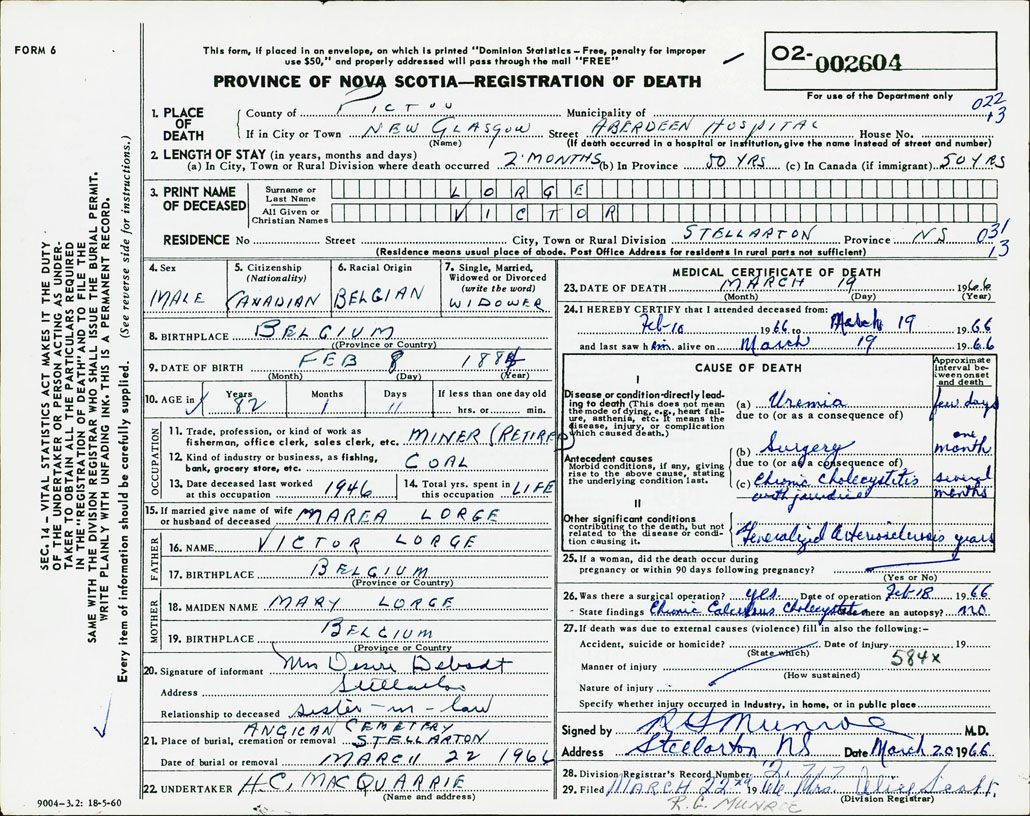 FORM 6
This form, if placed in an envelope, on which is printed "Dominion Statistics – Free, penalty for improper
use $50," and properly addressed will pass through the mail "FREE"
PROVINCE OF NOVA SCOTIA—REGISTRATION OF DEATH
O2- 002604
For use of the Department only
022
13
1. PLACE OF DEATH
County of PICTOU Municipality of
If in City or Town NEW GLASGOW Street ABERDEEN HOSPITAL House No.
(Name) (If death occurred in a hospital or institution, give the name instead of street and number)
2. LENGTH OF STAY (in years, months and days)
(a) In City, Town or Rural Division where death occurred 2 MONTHS (b) In Province 50 YRS (c) In Canada (if immigrant) 50 YRS
3. PRINT NAME OF DECEASED
Surname or Last Name LORGE
All Given or Christian Names VICTOR
RESIDENCE No Street City, Town or Rural Division STELLARTON Province NS
031
13
(Residence means usual place of abode. Post Office Address for residents in rural parts not sufficient)
4. Sex MALE
5. Citizenship (Nationality) CANADIAN
6. Racial Origin BELGIAN
7. Single, Married, Widowed or Divorced (write the word) WIDOWER
8. BIRTHPLACE BELGIUM
(Province or Country)
9. DATE OF BIRTH FEB 8 1884
(Month) (Day) (Year)
10. AGE in Years 82 Months 1 Days 11 If less than one day old hrs. or min.
OCCUPATION
11. Trade, profession, or kind of work as
fisherman, office clerk, sales clerk, etc. MINER (RETIRED)
12. Kind of industry or business, as fishing,
bank, grocery store, etc. COAL
13. Date deceased last worked at this occupation 1946
14. Total yrs. spent in this occupation LIFE
15. If married give name of wife
or husband of deceased MAREA LORGE
FATHER
16. NAME VICTOR LORGE
17. BIRTHPLACE BELGIUM
(Province or Country)
MOTHER
18. MAIDEN NAME MARY LORGE
19. BIRTHPLACE BELGIUM
(Province or Country)
20. Signature of informant Mrs
Address Stellarton
Relationship to deceased sister-in-law
ANGICAN CEMETERY
21. Place of burial, cremation or removal STELLARTON
Date of burial or removal MARCH 22 1966
22. UNDERTAKER H.C. MACQUARRIE
(Name and address)
9004–3.2: 18-5-60
MEDICAL CERTIFICATE OF DEATH
23. DATE OF DEATH MARCH 19 1966
(Month) (Day) (Year)
24. I HEREBY CERTIFY that I attended deceased from:
Feb 10 1966 to March 19 1966
and last saw him alive on March 19 1966
CAUSE OF DEATH
Approximate interval between onset and death
I
Disease or condition-directly leading to death (This does not mean the mode of dying, e.g., heart failure, asthenia, etc. It means the disease, injury, or complication which caused death.)
(a) Uremia few days
due to (or as a consequence of)
Antecedent causes
Morbid conditions, if any, giving rise to the above cause, stating the underlying condition last.
(b) Surgery one month
due to (or as a consequence of)
(c) Chronic Cholecystitis with jaundice several months
II
Other significant conditions
contributing to the death, but not related to the disease or condition causing it.
Generalized Arteriosclerosis years
25. If a woman, did the death occur during
pregnancy or within 90 days following pregnancy?
(Yes or No)
26. Was there a surgical operation? yes. Date of operation Feb 18 1966
- State findings Chronic Calculous Cholecystitis Was there an autopsy? no.
27. If death was due to external causes (violence) fill in also the following:–
Accident, suicide or homicide? Date of injury 19
(State which)
584x
Manner of injury
(How sustained)
Nature of injury
Specify whether injury occurred in Industry, in home, or in public place
Signed by R G Munroe M.D.
Address Stellarton NS Date March 20 1966
28. Division Registrar's Record Number
29. Filed MARCH 22nd 1966 Mrs. Alice Scott.
(Division Registrar)
R.G. MUNROE
SEC. 14 – VITAL STATISTICS ACT MAKES IT THE DUTY
OF THE UNDERTAKER OR PERSON ACTING AS UNDER-
TAKER TO OBTAIN ALL THE PARTICULARS REQUIRED
IN THE "REGISTRATION OF DEATH" AND TO FILE THE
SAME WITH THE DIVISION REGISTRAR WHO SHALL ISSUE THE BURIAL PERMIT.
WRITE PLAINLY WITH UNFADING INK. THIS IS A PERMANENT RECORD.
Every item of information should be carefully supplied. (See reverse side for instructions.)